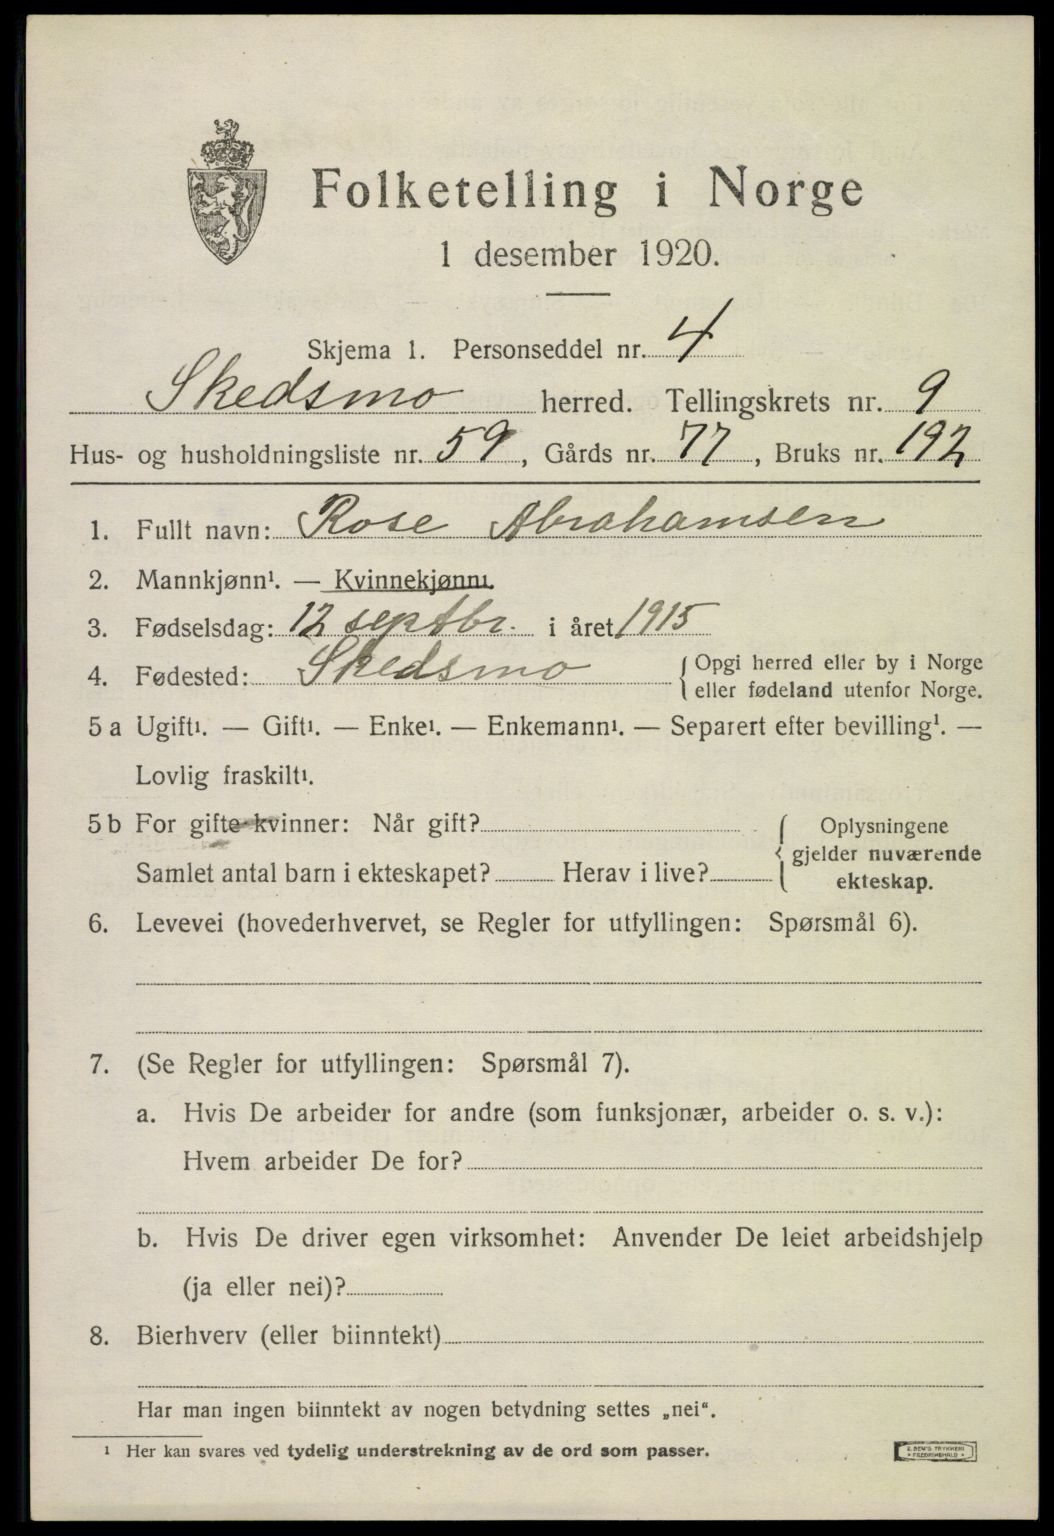 Folketelling i Norge
1 desember 1920.
Skjema 1. Personseddel nr. 4
Skedsmo herred. Tellingskrets nr. 9
Hus- og husholdningsliste nr. 59, Gårds nr. 77, Bruks nr. 192
1. Fullt navn: Rose Abrahamsen
2. Mannkjønn¹. — Kvinnekjønn¹.
3. Fødselsdag: 12 septbr. i året 1915
4. Fødested: Skedsmo {Opgi herred eller by i Norge
eller fødeland utenfor Norge.
5 a Ugift¹. — Gift¹. — Enke¹. — Enkemann¹. — Separert efter bevilling¹. —
Lovlig fraskilt¹.
5 b For gifte kvinner: Når gift? { Oplysningene
gjelder nuværende
Samlet antal barn i ekteskapet? Herav i live? ekteskap.
6. Levevei (hovederhvervet, se Regler for utfyllingen: Spørsmål 6).
7. (Se Regler for utfyllingen: Spørsmål 7).
a. Hvis De arbeider for andre (som funksjonær, arbeider o. s. v.):
Hvem arbeider De for?
b. Hvis De driver egen virksomhet: Anvender De leiet arbeidshjelp
(ja eller nei)?
8. Bierhverv (eller biinntekt)
Har man ingen biinntekt av nogen betydning settes „nei“.
¹ Her kan svares ved tydelig understrekning av de ord som passer.